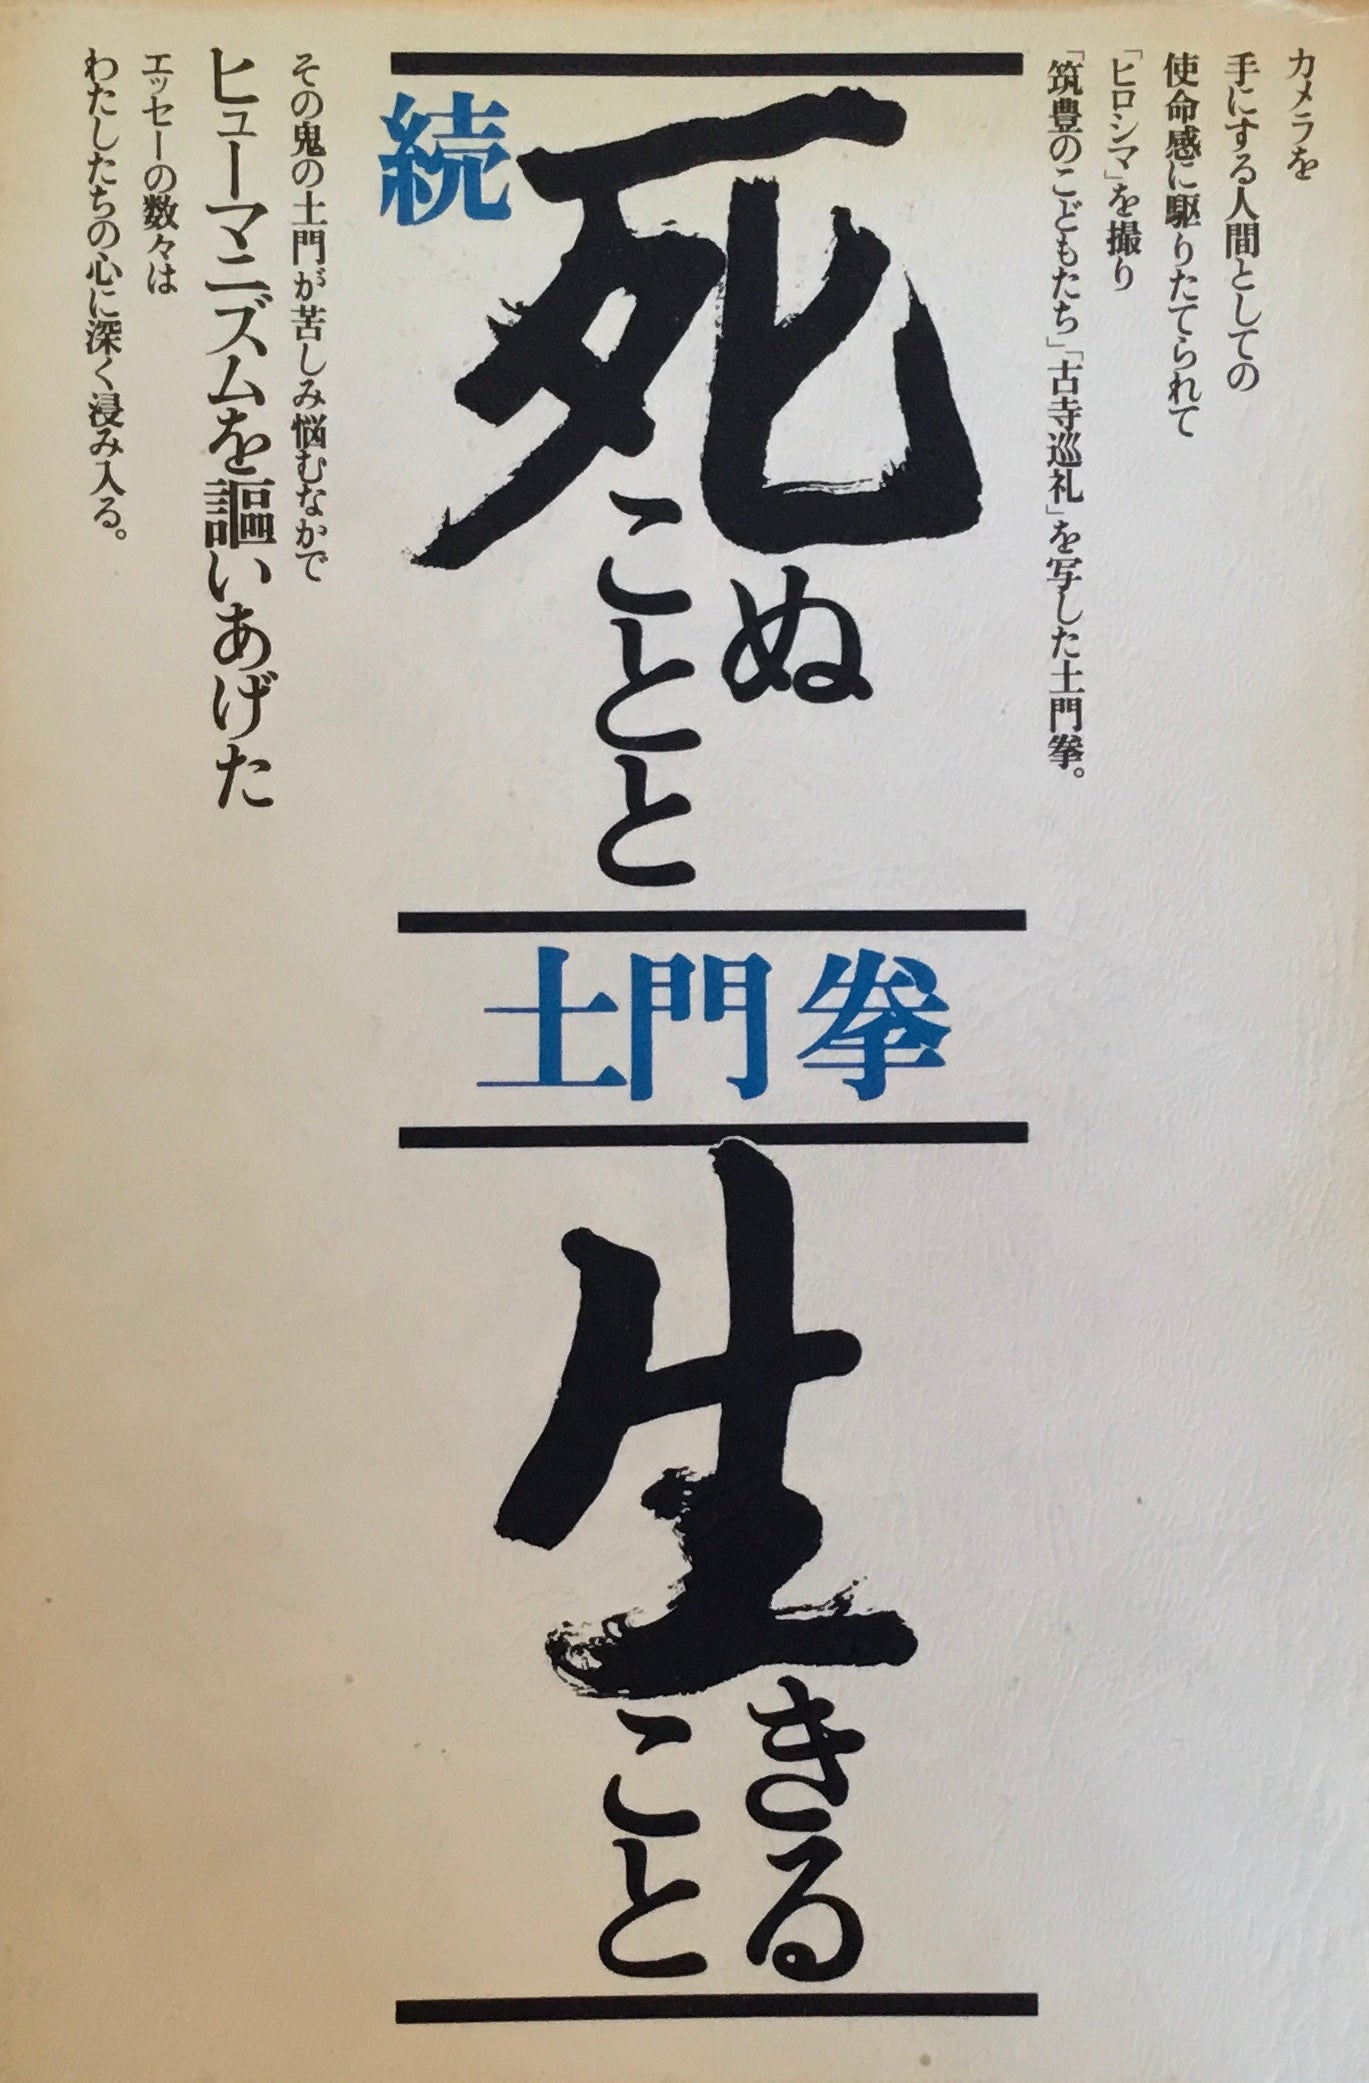 カメラを
手にする人間としての
使命感に駆りたてられて
「ヒロシマ」を撮り
「筑豊のこどもたち」「古寺巡礼」を写した土門拳。
続
死ぬ
ことと
土門拳
生きる
こと
その鬼の土門が苦しみ悩むなかで
ヒューマニズムを謳いあげた
エッセーの数々は
わたしたちの心に深く浸み入る。